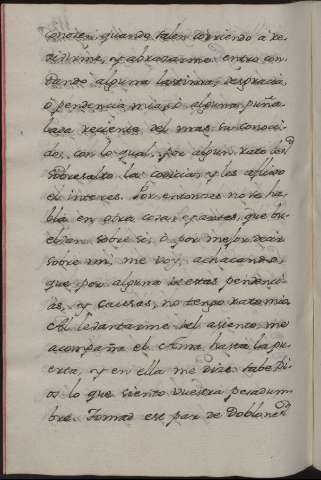 conocen quando salen corriendo a re-
civirme, y abrazarme entro con-
tando alguna lastima, desgracia,
ò pendencia mia, ò alguna puña-
lada reciente del mas su conoci-
do, con lo qual, por algun rato
sobresalto la codicia, y les aflixo
el interes. Por entonces no se ha-
bla en otra cosa, y antes, que bu-
elvan sobre si, ò por mejor decir
sobre mi, me voy, achacando,
que por alguna de estas pendenci-
as, y causas, no tengo rato mio
Al levantarme del asiento, me
acompaña el Ama hasta la pu-
erta, y en ella me dize sabe Di-
os lo que siento vuestra pesadum-
bre. Tomad ese par de Doblones